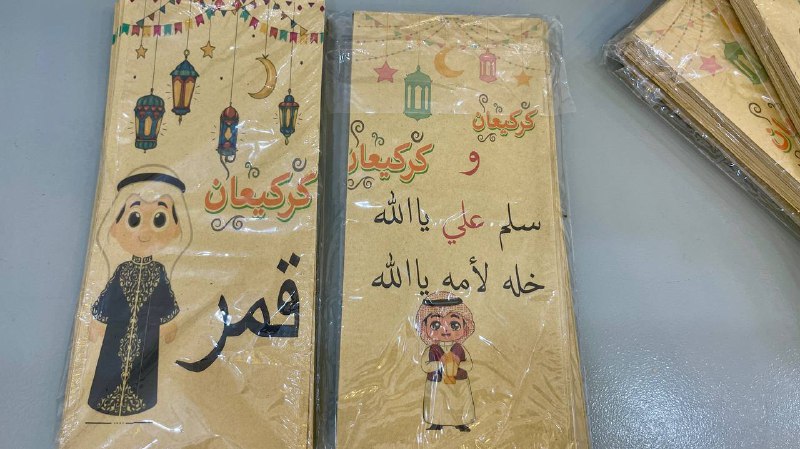 كركيعان
قمر
كركيعان
و
كركيعان
سلم علي ياالله
خله لأمه ياالله